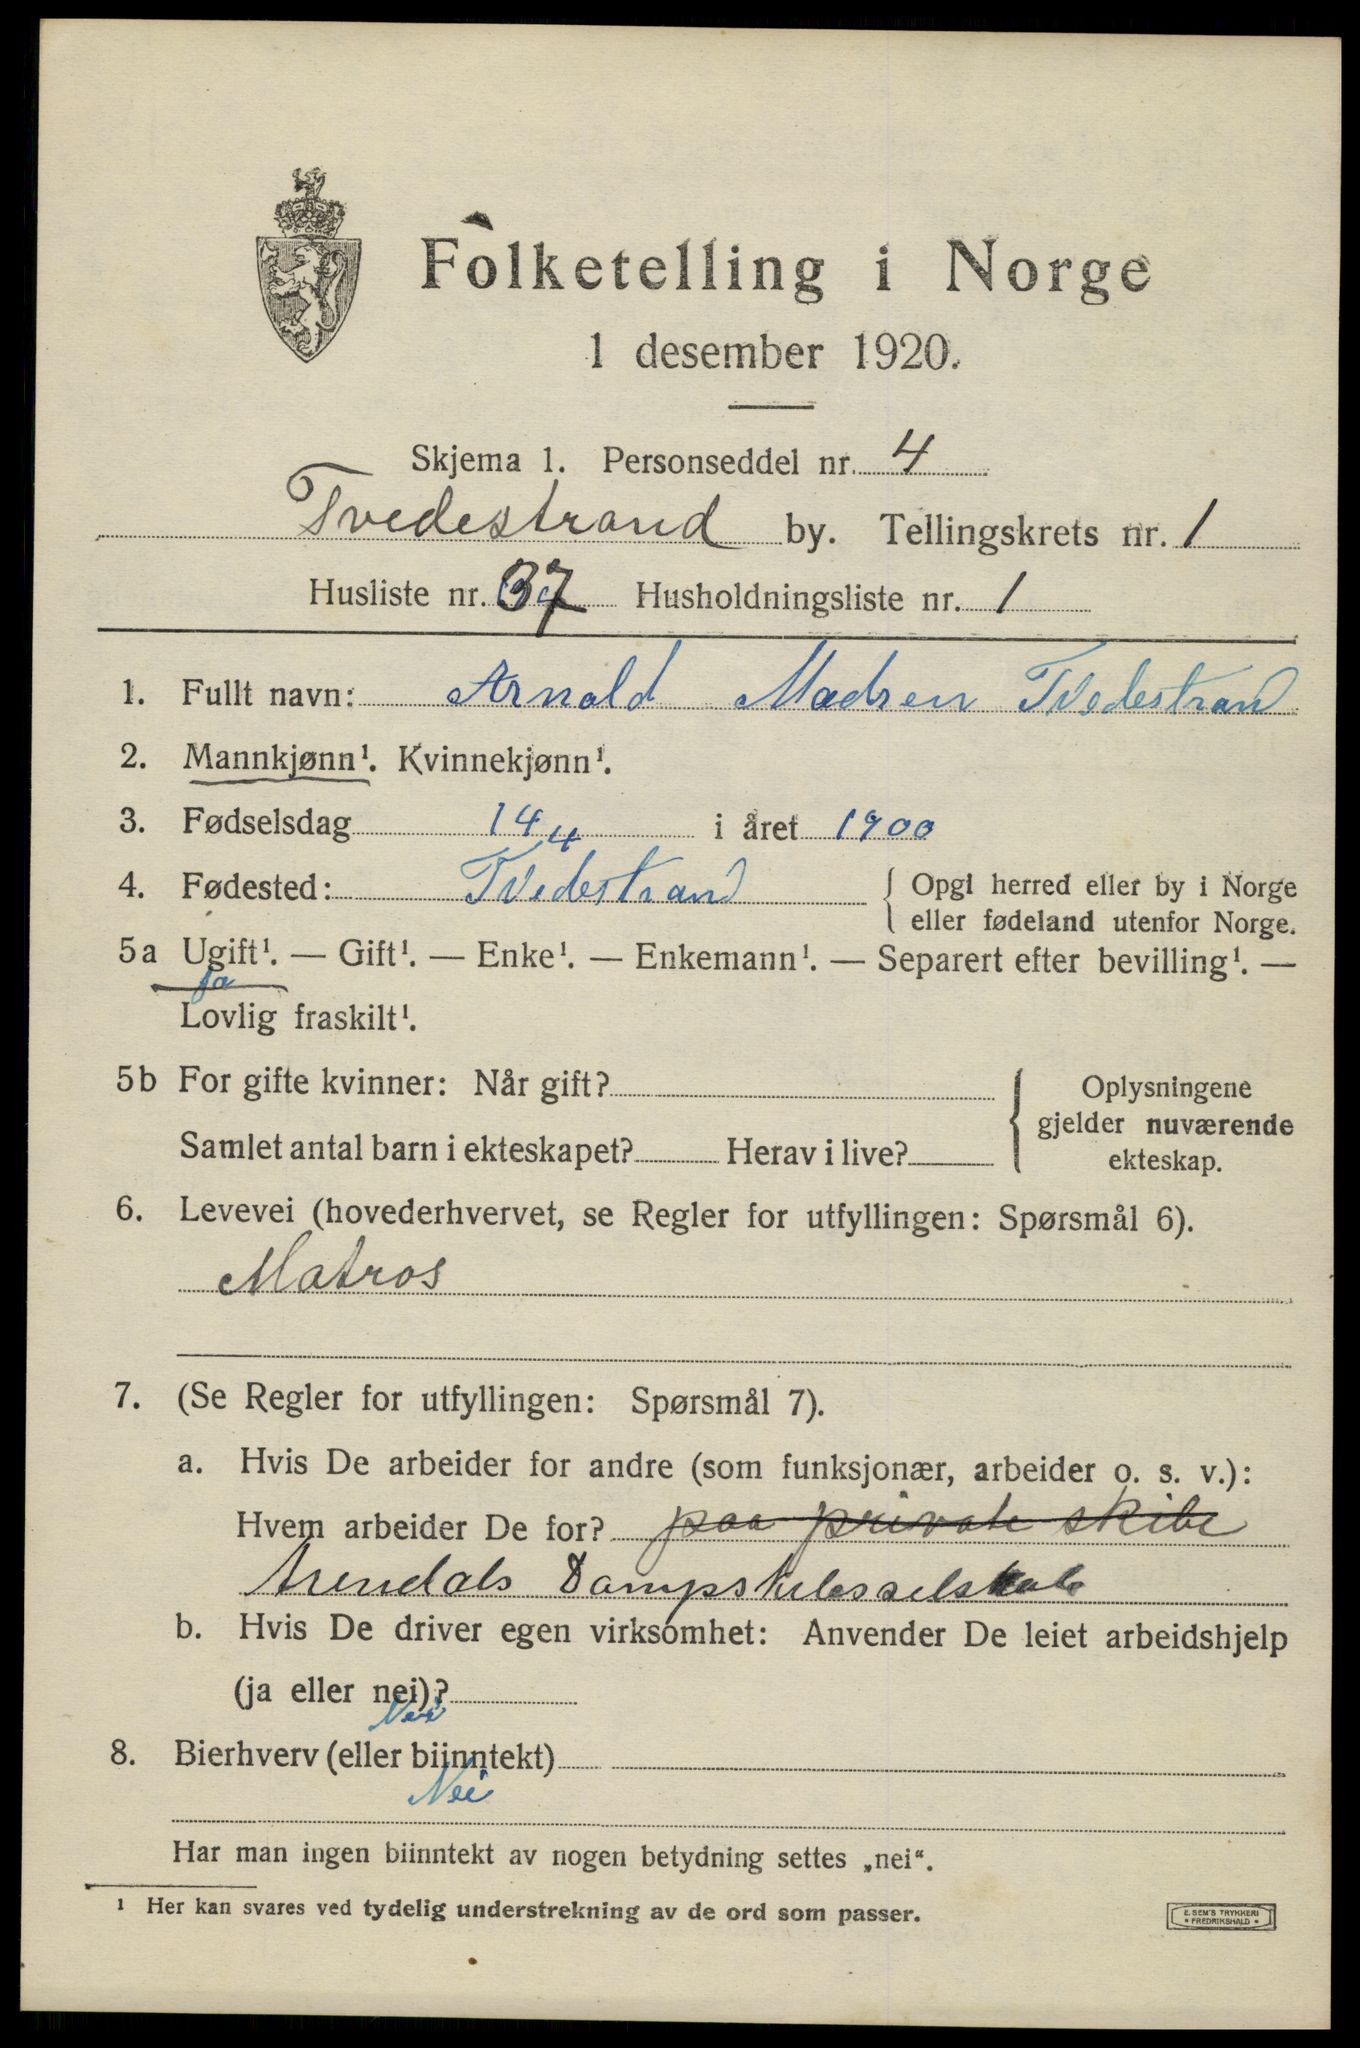 Folketelling i Norge
1 desember 1920.
Skjema 1. Personseddel nr. 4
Tvedestrand by. Tellingskrets nr. 1
Husliste nr. 37 Husholdningsliste nr. 1
1. Fullt navn: Arnold Madsen Tvedestrand
2. Mannkjønn¹. Kvinnekjønn¹.
3. Fødselsdag 14/4 i året 1900
4. Fødested: Tvedestrand { Opgi herred eller by i Norge
eller fødeland utenfor Norge.
5a Ugift¹. — Gift¹. — Enke¹. — Enkemann¹. — Separert efter bevilling¹. —
ja
Lovlig fraskilt¹.
5b For gifte kvinner: Når gift? { Oplysningene
gjelder nuværende
Samlet antal barn i ekteskapet? Herav i live? ekteskap.
6. Levevei (hovederhvervet, se Regler for utfyllingen: Spørsmål 6).
Matros
7. (Se Regler for utfyllingen: Spørsmål 7).
a. Hvis De arbeider for andre (som funksjonær, arbeider o. s. v.):
Hvem arbeider De for? paa private skibe
Arendals
b. Hvis De driver egen virksomhet: Anvender De leiet arbeidshjelp
(ja eller nei)?
Nei
8. Bierhverv (eller biinntekt)
Nei
Har man ingen biinntekt av nogen betydning settes „nei“.
¹ Her kan svares ved tydelig understrekning av de ord som passer.
E. SEM'S TRYKKERI
FREDRIKSHALD